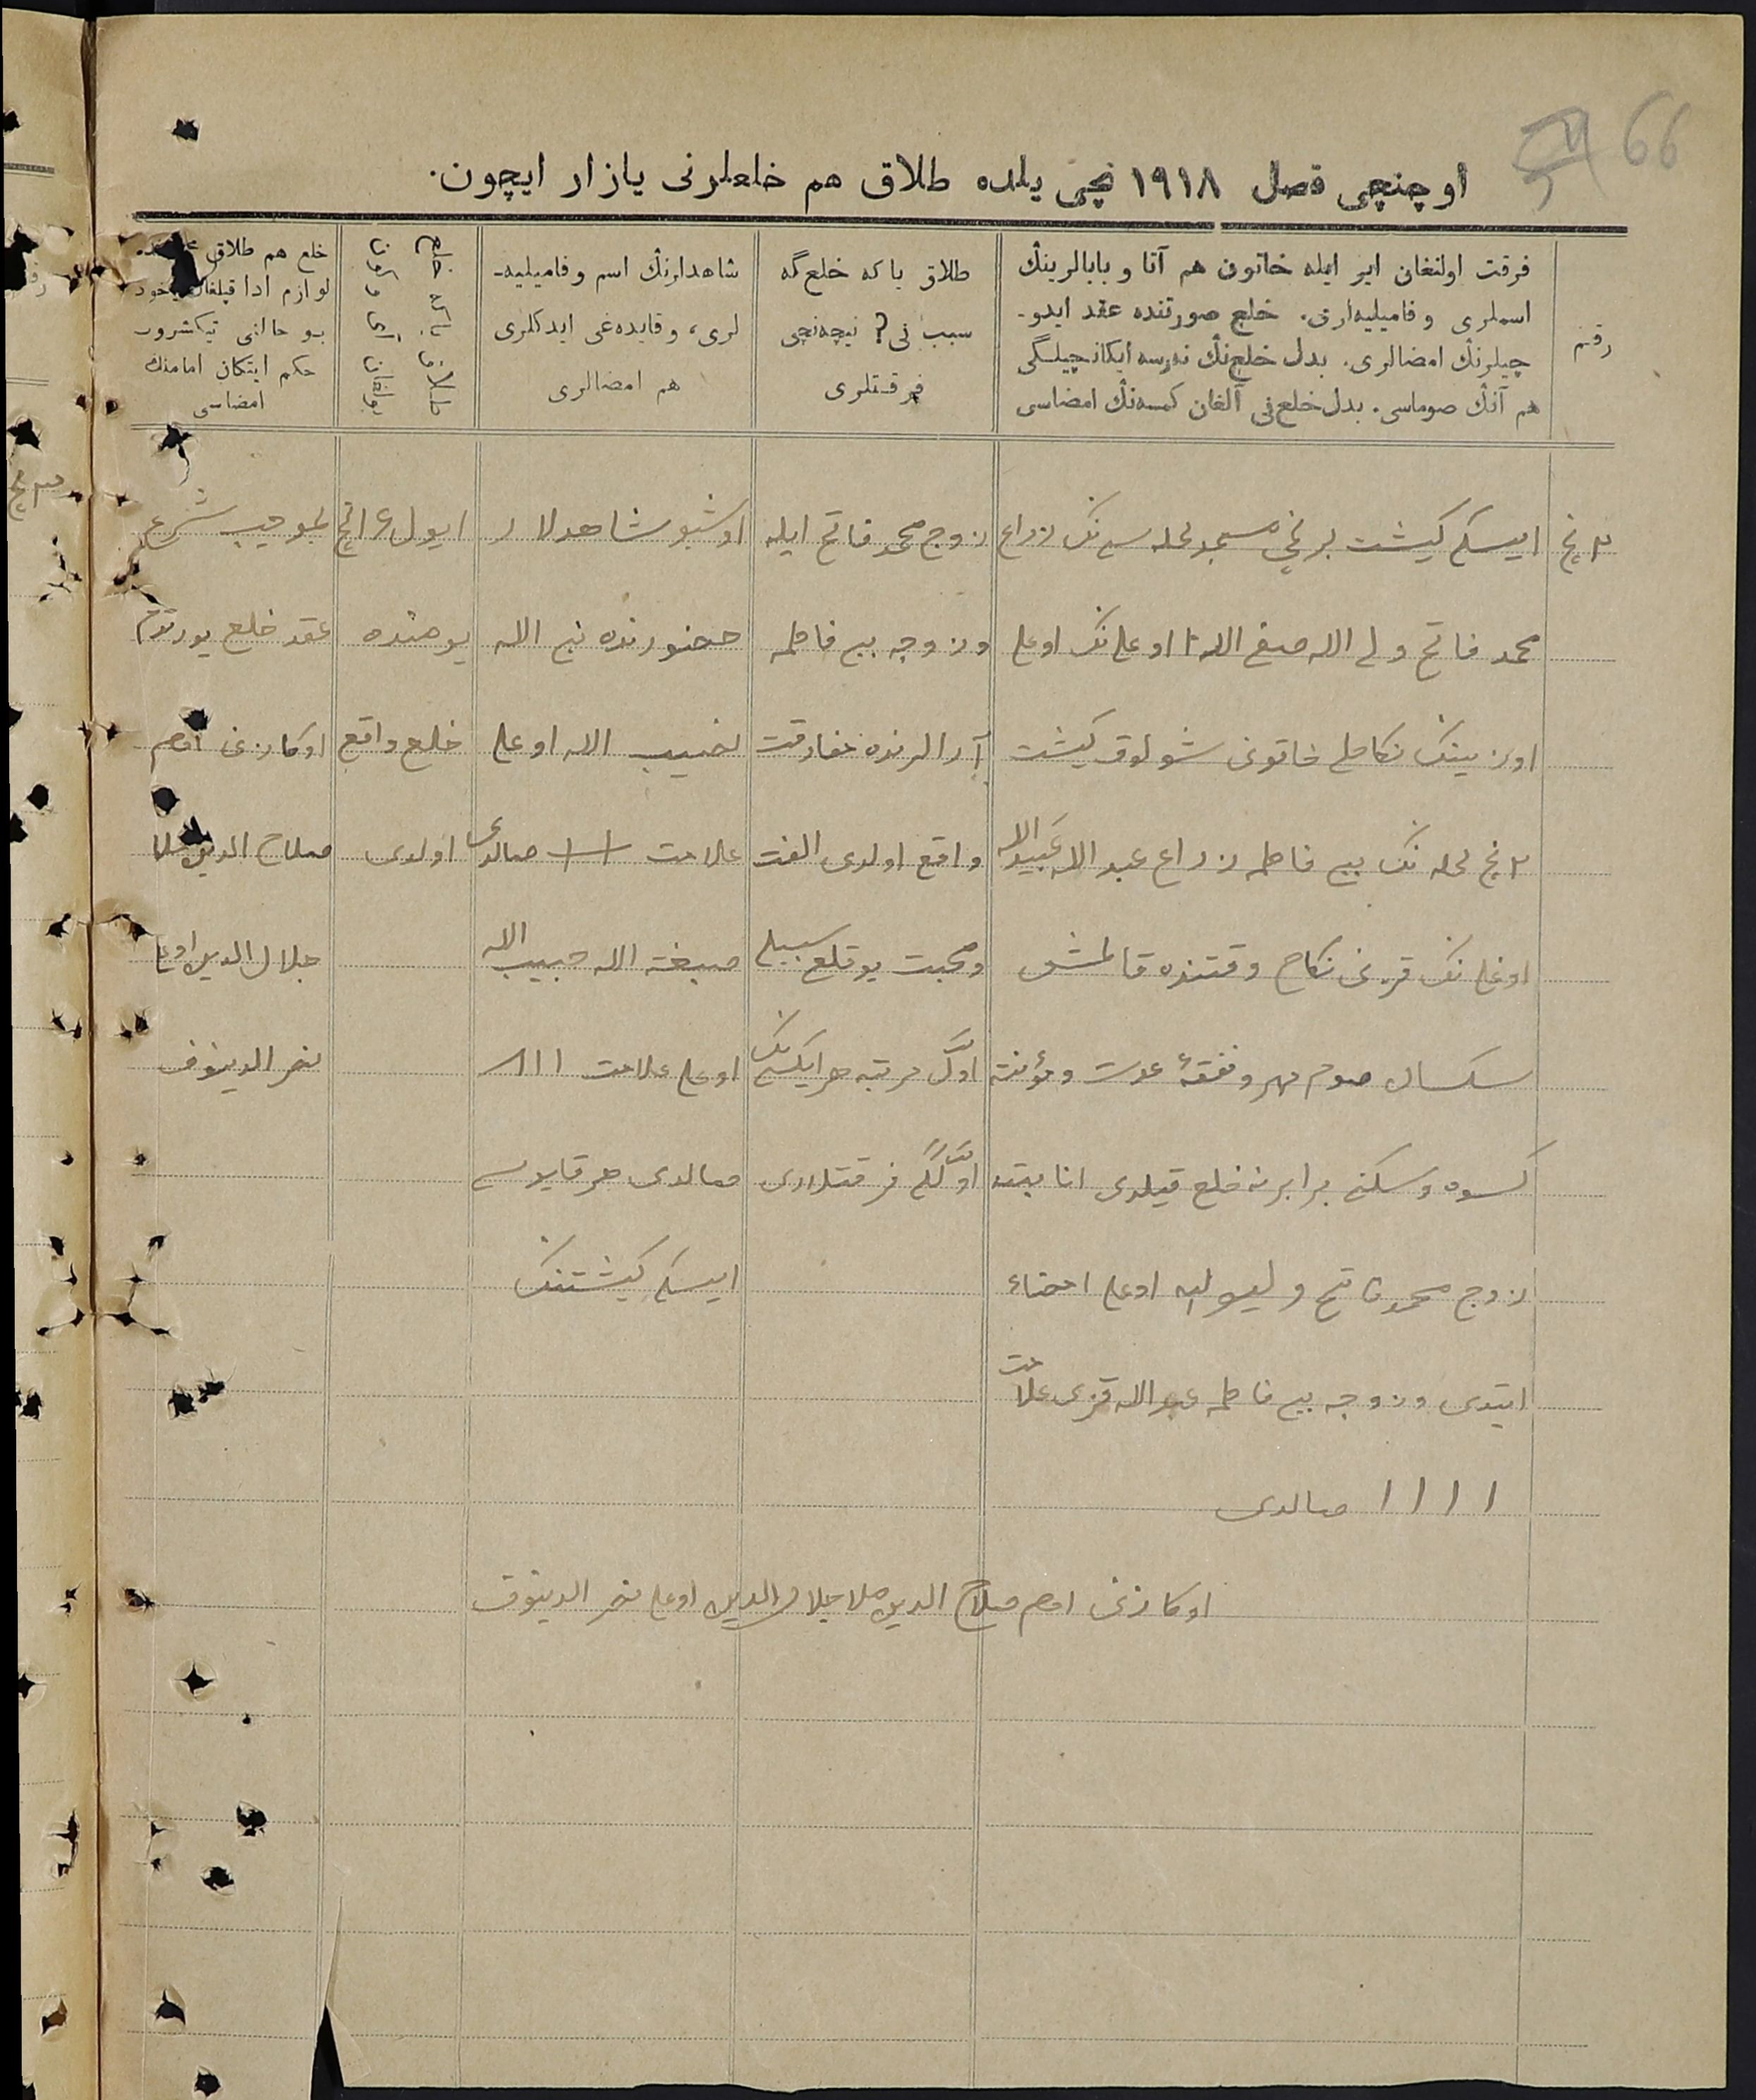 66
اوچنچی فصل ١٩١٨ نچی یلده طلاق هم خلعلرنی یازار ایچون.
رقم
فرقت اولنغان ایر ایله خاتون هم آتا و بابالرینڭ
اسملری و فامیلیه‌لری. خلع صورتنده عقد ایدو-
چیلرنڭ امضالری. بدل خلع‌نڭ نه‌رسه ایکانچیلگی
هم آنڭ صوماسی. بدل خلع‌نی آلغان کمسه‌نڭ امضاسی
طلاق یا که خلع گه
سبب نی؟ نیچه‌نچی
فرقتلری
شاهدلرنڭ اسم و فامیلیه-
لری، و قایده‌غی ایدکلری
هم امضالری
خلع هم طلاق
لوازم ادا قیلغان یاخود
بو حالنی تیکشروب
حکم ایتکان امامنڭ
امضاسی
٣ نچی
ایسکی کیشت برنچی مسجد محله سی نک زراع
محمد فاتح ولی الله صفی الله اوغلی نک اوغلی
اوزینک نکاحلی خاتونی شولوق کیشت
٢ نچی محله نک بیبی فاطمه زراع عبد الله عبید الله
اوغلی نک قزی نی نکاح وقتنده قالمش
سکسان صوم مهر و نفقهٔ عدت و مؤنت
کسوه و سکنی برابرینه خلع قیلدی
زوج محمد فاتح ولی الله اوغلی امضاء
ایتدی و زوجه بیبی فاطمه عبد الله قزی علامت
١ ١ ١ ١ صالدی
زوج محمد فاتح ایله
و زوجه بیبی فاطمه
آرالرنده مفارقت
واقع اولدی الفت
و محبت یوقلغی سببلی
اوّل مرتبه هر ایکیسی نک
اوّلگی فرقتلری
اوشبو شاهدلار
حضورنده
حبیب الله اوغلی
علامت صالدی
صبغة الله حبیب الله
اوغلی علامت ١١١
صالدی هر قایوسی
ایسکی کیشتنک
ایول ٤ نچی
یومنده
خلع واقع
اولدی
بموجب شرع
عقد خلع یورتدم
اوکازنی امام
صلاح الدین ملا
جلال الدین اوغلی
فخر الدینوف
اوکازنی امام صلاح الدین ملا جلال الدین اوغلی فخر الدینوف